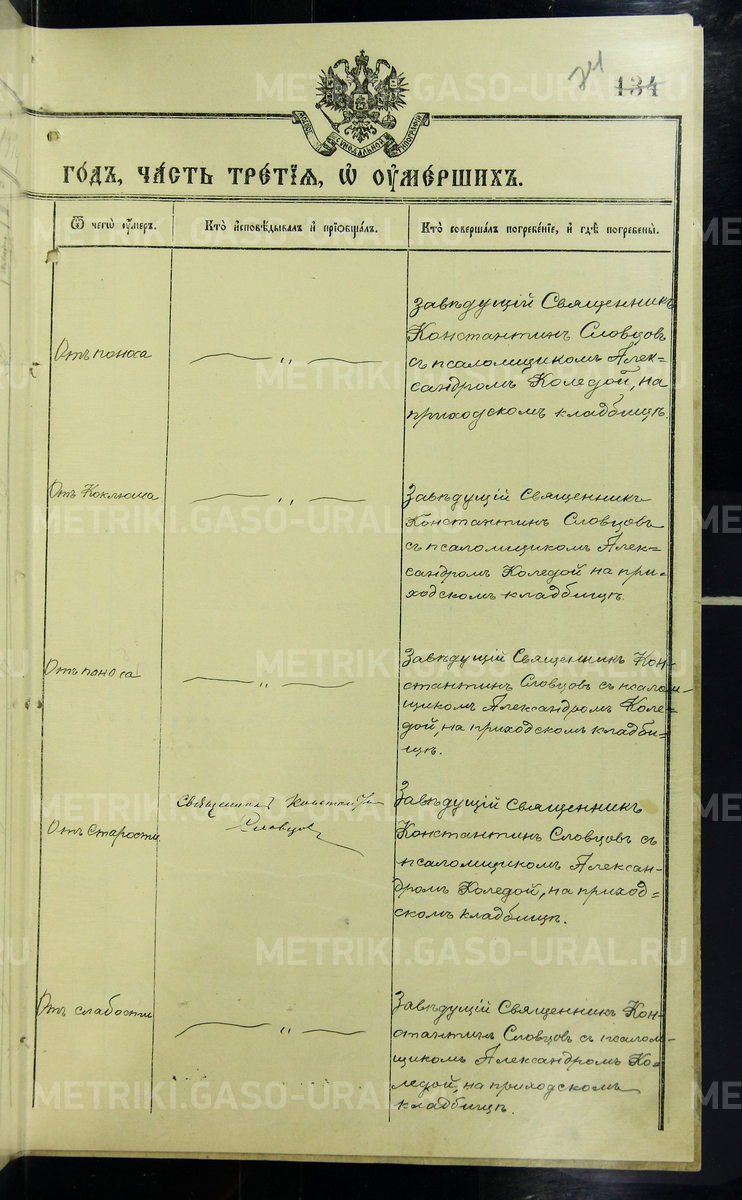 134
ГО́ДЪ, ЧА́СТЬ ТРЕ́ТІЯ, Ѡ ОУМЕ́РШИХЪ.
Ѿ чегѡ̀ оу҆́меръ.
Кто̀ и҆сповѣ́дывалъ и҆ прїѡбща́лъ.
Кто̀ соверша́лъ погребе́нїе, и҆ гдѣ̀ погребены̀.
Отъ поноса
— „ —
Завѣдущій Священникъ
Константинъ Словцовъ
съ псаломщикомъ Алек=
сандромъ Коледой, на
приходскомъ кладбищѣ.
Отъ Коклюша
— „ —
Завѣдущій Священникъ
Константинъ Словцовъ
съ псаломщикомъ Алек=
сандромъ Коледой на при-
ходскомъ кладбищѣ.
Отъ поноса
— „ —
Завѣдущій Священникъ Кон-
стантинъ Словцовъ съ псалом-
щикомъ Александромъ Коле=
дой, на приходскомъ кладби=
щѣ.
Отъ старости
Священникъ Константинъ
Словцовъ
Завѣдущій Священникъ
Константинъ Словцовъ съ
псаломщикомъ Алексан-
дромъ Коледой, на приход=
скомъ кладбищѣ.
Отъ слабости
— „ —
Завѣдущій Священникъ Кон-
стантинъ Словцовъ съ псалом-
щикомъ Александромъ Ко=
ледой, на приходскомъ
кладбищѣ.
METRIKI.GASO-URAL.RU